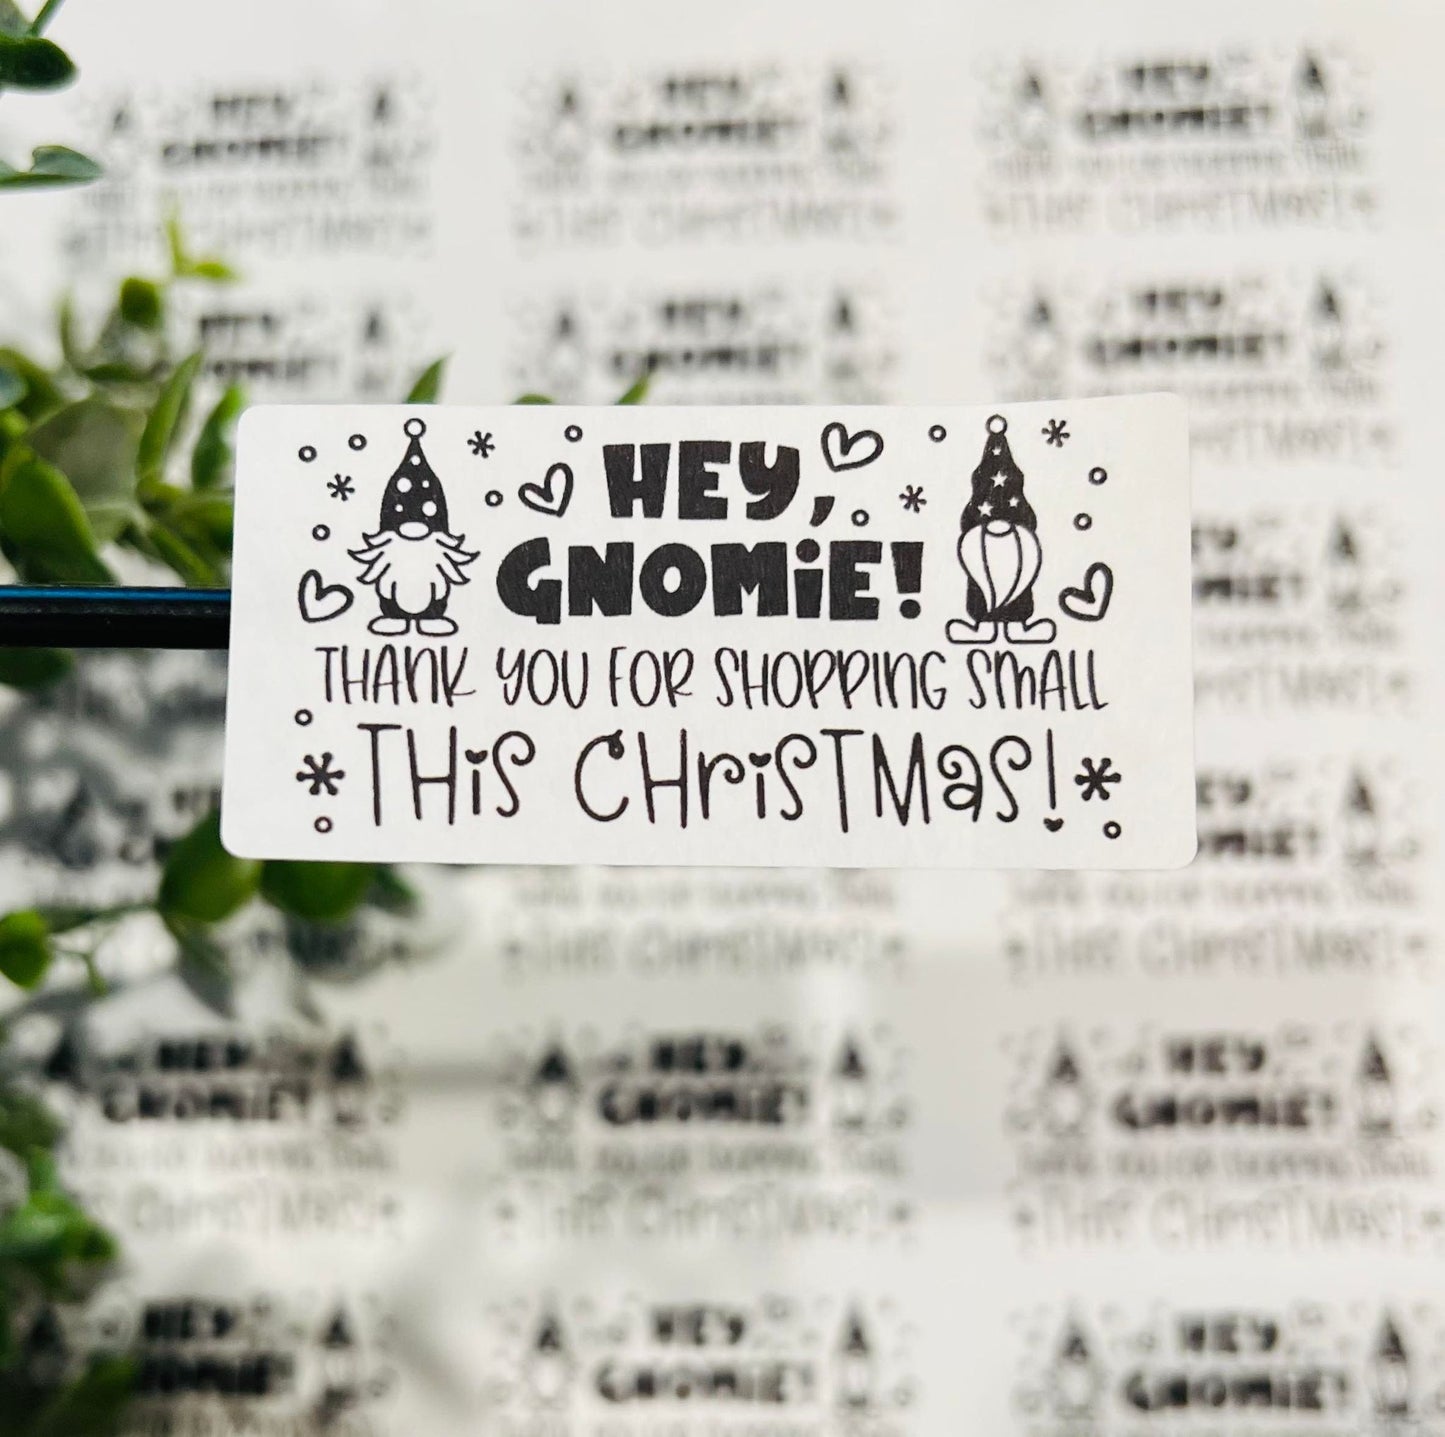 HEY,
GNOMiE!
THANK YOU FOR SHOPPING SMALL
THiS CHriSTMaS!